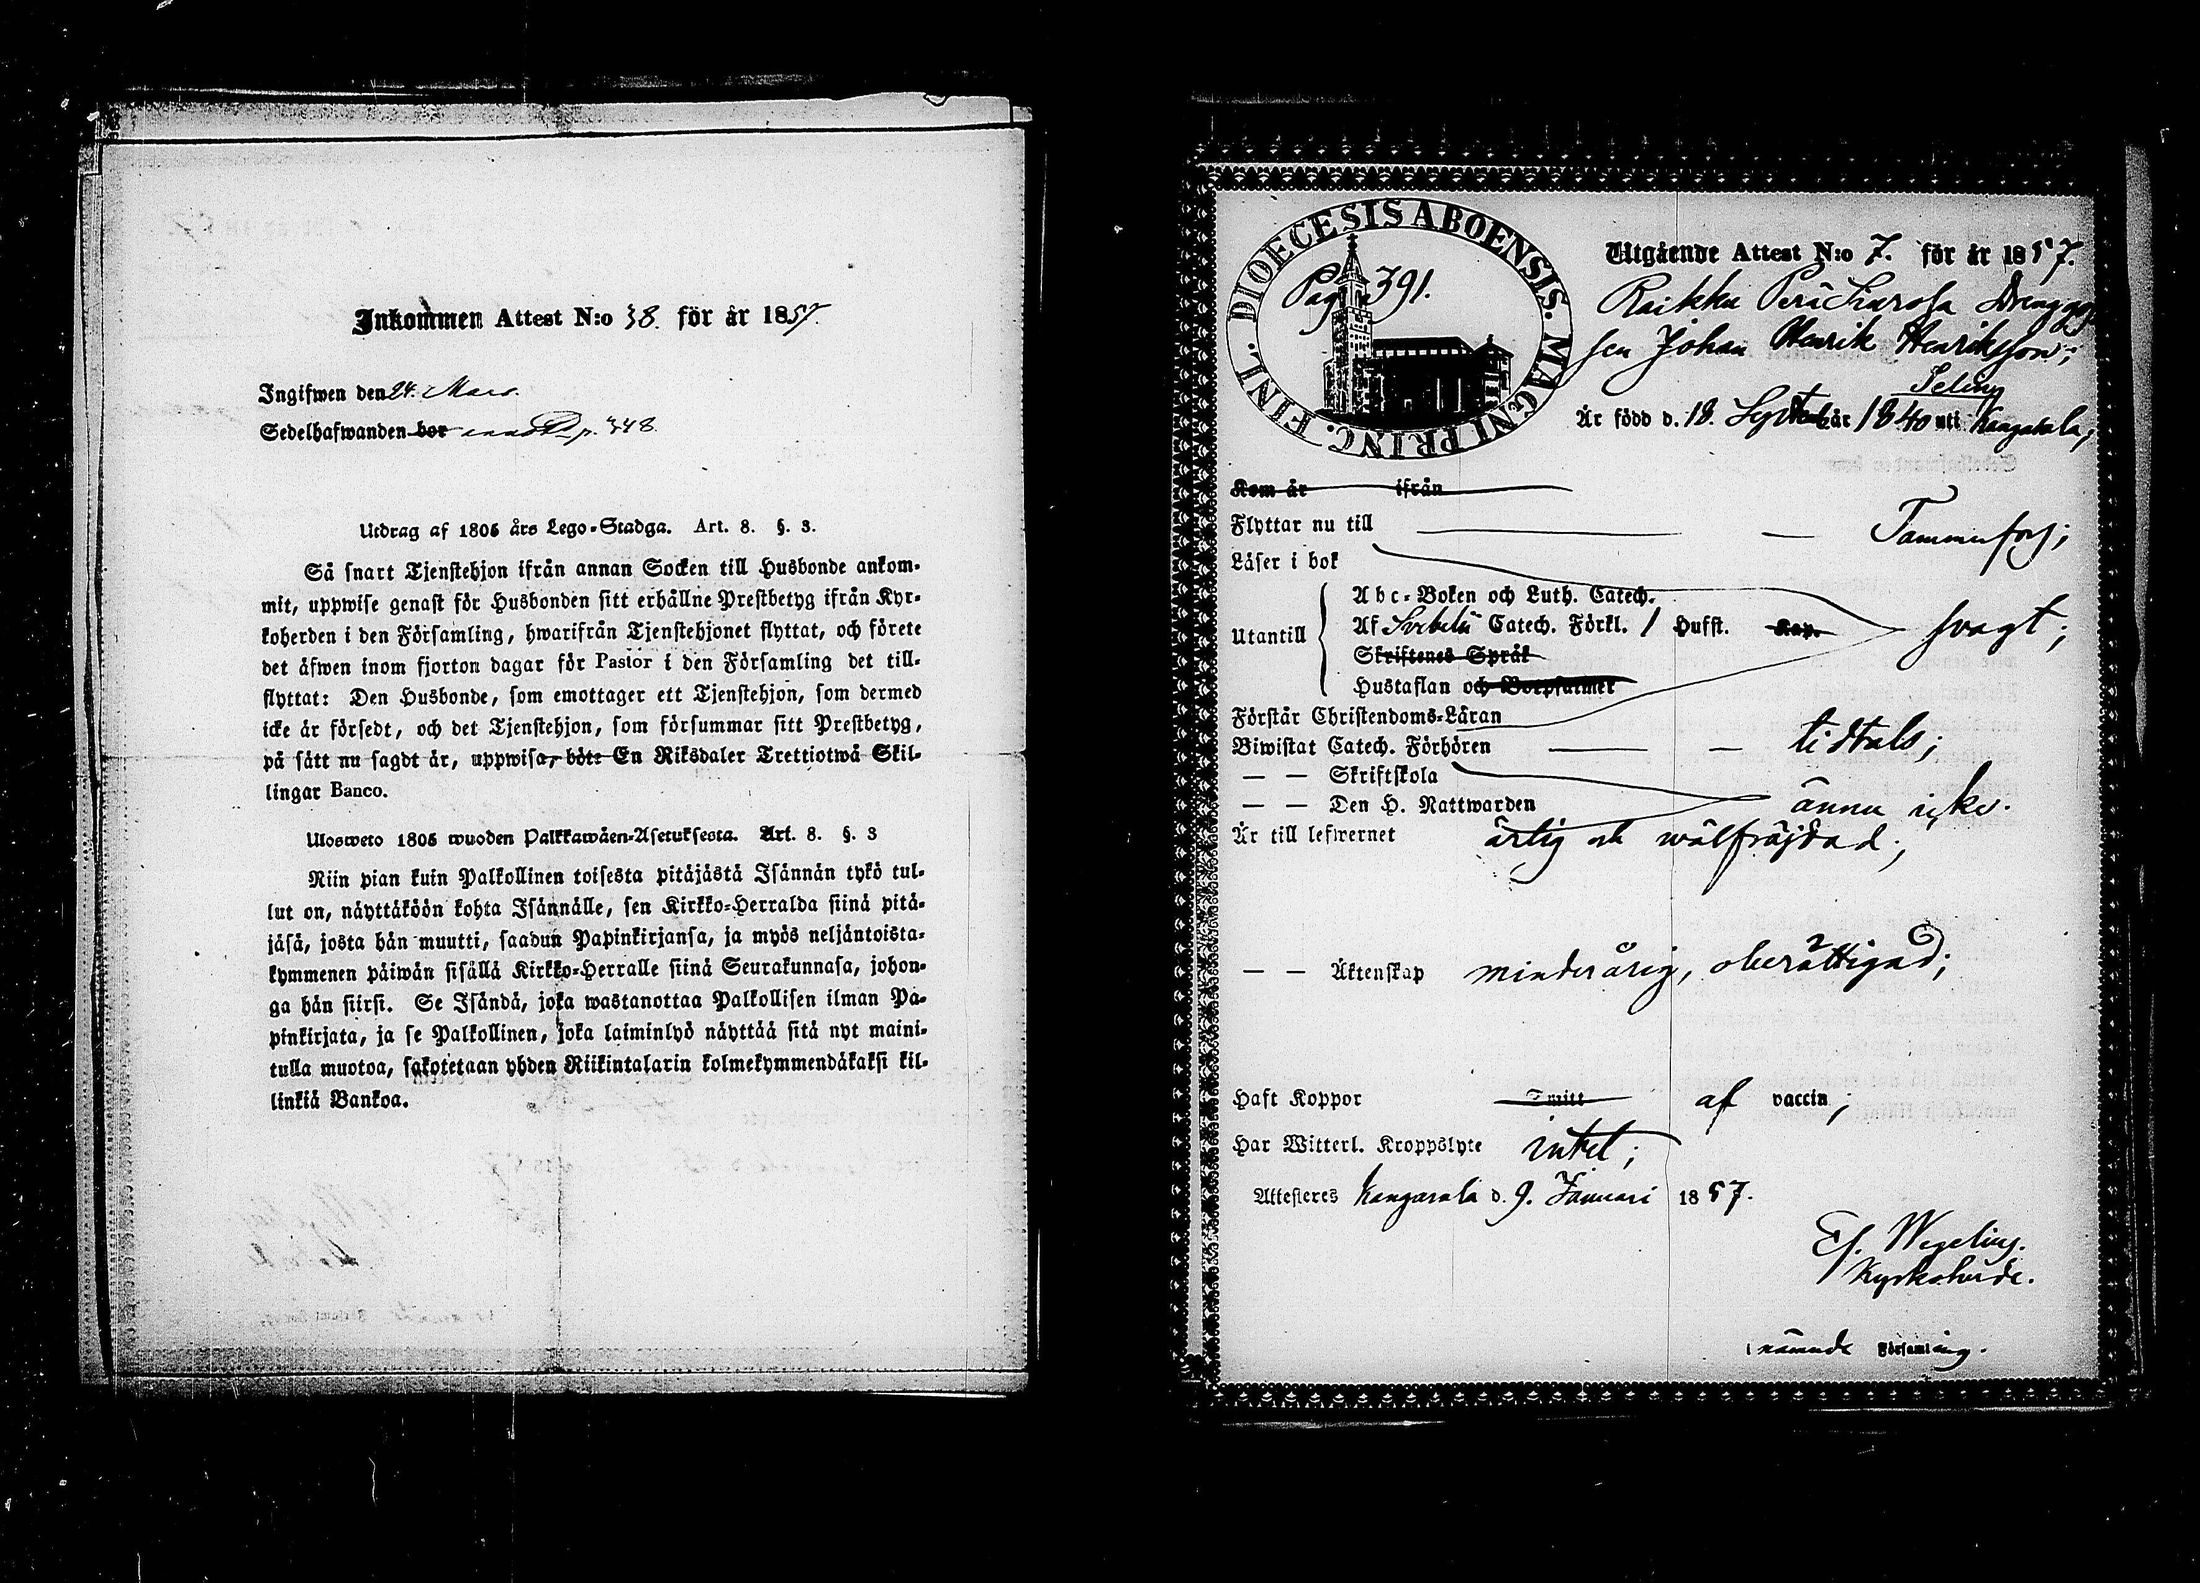 Inkommen Attest N:o 38. för år 1857.
Ingifwen den 24. Mars.
Sedelhafwanden bor p. 348.
Utdrag af 1805 års Lego-Stadga. Art. 8. §. 3.
Så snart Tjenstehjon ifrån annan Socken till Husbonde ankom-
mit, uppwise genast för Husbonden sitt erhållne Prestbetyg ifrån Kyr-
koherden i den Församling, hwarifrån Tjenstehjonet flyttat, och förete
det äfwen inom fjorton dagar för Pastor i den Församling det till-
flyttat: Den Husbonde, som emottager ett Tjenstehjon, som dermed
icke är försedt, och det Tjenstehjon, som försummar sitt Prestbetyg,
på sätt nu sagdt är, uppwisa, böte En Riksdaler Trettiotwå Skil-
lingar Banco.
Ulosweto 1805 wuoden Palkkawäen-Asetuksesta. Art. 8. §. 3
Niin pian kuin Palkollinen toisesta pitäjästä Isännän tykö tul-
lut on, näyttäköön kohta Isännälle, sen Kirkko-Herralda siinä pitä-
jäsä, josta hän muutti, saadun Papinkirjansa, ja myös neljäntoista-
kymmenen päiwän sisällä Kirkko-Herralle siinä Seurakunnasa, johon-
ga hän siirsi. Se Isändä, joka wastanottaa Palkollisen ilman Pa-
pinkirjata, ja se Palkollinen, joka laiminlyö näyttää sitä nyt maini-
tulla muotoa, sakotetaan yhden Riikintalarin kolmekymmendäkaksi kil-
linkiä Bankoa.
DIOECESIS ABOENSIS. MAGNI PRINC. FINL.
Pag. 391.
Utgående Attest N:o 7. för år 1857.
Raikku Perä Drenggos-
sen Johan Henrik Henriksson;
Är född d. 18. Septemb. år 1840 uti Kangasala;
Kom år ifrån
Flyttar nu till — — Tammerfors;
Läser i bok
Utantill
Abc-Boken och Luth. Catech.
Af Svebelii Catech. Förkl. / Hufst. Kap. svagt;
Skriftenes Språk
Hustaflan och Botpsalmer
Förstår Christendoms-Läran
Biwistat Catech. Förhören — — tidtals;
— — Skriftskola
— — Den H. Nattwarden ännu icke.
Är till lefwernet ärlig och wälfräjdad;
— — Äktenskap minderårig, oberättigad;
Haft Koppor Smitt af vaccin;
Har Witterl. Kroppslyte intet;
Attesteres Kangasala d. 9. Januari 1857.
Ef. Wegelius.
Kyrkoherde.
i nämnde Församling.